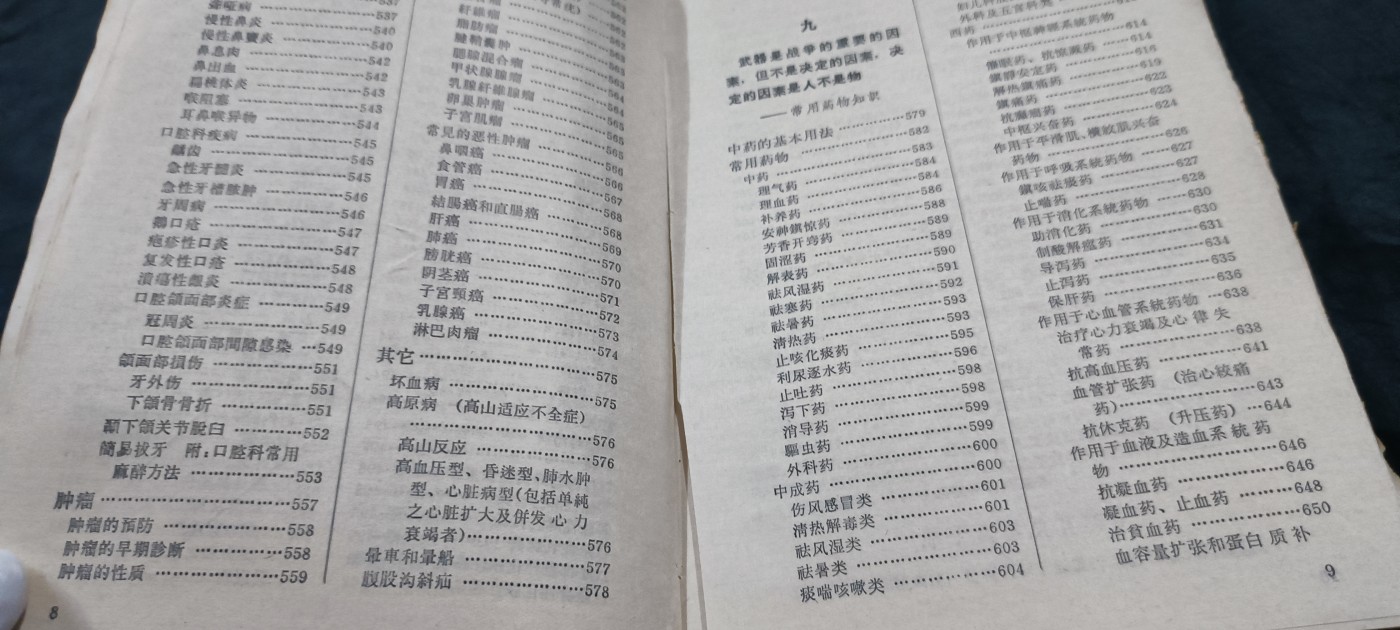 聋哑病
537
慢性鼻炎 540
慢性鼻竇炎 540
鼻息肉 542
鼻出血 542
扁桃体炎 543
喉阻塞 543
耳鼻喉异物 544
口腔科疾病 545
齲齿 545
急性牙髓炎 545
急性牙槽脓肿 546
牙周病 546
鵝口疮 547
疱疹性口炎 547
复发性口疮 548
潰瘍性齦炎 548
口腔頜面部炎症 549
冠周炎 549
口腔頜面部間隙感染 549
頜面部損伤 551
牙外伤 551
下頜骨骨折 551
顳下頜关节脫臼 552
簡易拔牙 附：口腔科常用
麻醉方法 553
肿瘤 557
肿瘤的預防 558
肿瘤的早期診断 558
肿瘤的性质 559
8
纤維瘤
脂肪瘤
腱鞘囊肿
腮腺混合瘤
甲状腺腺瘤
乳腺纤維腺瘤 564
卵巢肿瘤 565
子宮肌瘤 565
常見的恶性肿瘤 565
鼻咽癌 566
食管癌 566
胃癌 567
結腸癌和直腸癌 568
肝癌 568
肺癌 569
膀胱癌 570
阴茎癌 570
子宮頸癌 571
乳腺癌 572
淋巴肉瘤 573
574
其它 575
坏血病 575
高原病 （高山适应不全症）
576
高山反应 576
高血压型、昏迷型、肺水肿
型、心脏病型（包括单純
之心脏扩大及併发心力
衰竭者） 576
暈車和暈船 577
腹股沟斜疝 578
九
武器是战争的重要的因
素，但不是决定的因素，决
定的因素是人不是物
——常用药物知识
579
中药的基本用法 582
常用药物 583
中药 584
理气药 584
理血药 586
补养药 588
安神鎮惊药 589
芳香开窍药 589
固涩药 590
解表药 591
祛风湿药 592
祛寒药 593
祛暑药 593
清热药 595
止咳化痰药 596
利尿逐水药 598
止吐药 598
泻下药 599
消导药 599
驅虫药 600
外科药 600
中成药 601
伤风感冒类 601
清热解毒类 603
祛风湿类 603
祛暑类 604
痰喘咳嗽类
外科及五官科类
西药 614
作用于中枢神經系統药物
614
催眠药、抗惊厥药 616
鎮靜安定药 619
解热鎮痛药 622
鎮痛药 623
抗癲癇药 624
中枢兴奋药
作用于平滑肌、横紋肌兴奋
药物 626
作用于呼吸系統药物 627
鎮咳祛痰药 627
止喘药 628
作用于消化系統药物 630
助消化药 630
制酸解痙药 631
导泻药 634
止泻药 635
保肝药 636
作用于心血管系統药物 638
治疗心力衰竭及心律失
常药 638
抗高血压药 641
血管扩张药 （治心絞痛
药） 643
抗休克药 （升压药） 644
作用于血液及造血系統药
物 646
抗凝血药 646
凝血药、止血药 648
治貧血药 650
血容量扩张和蛋白质补
9